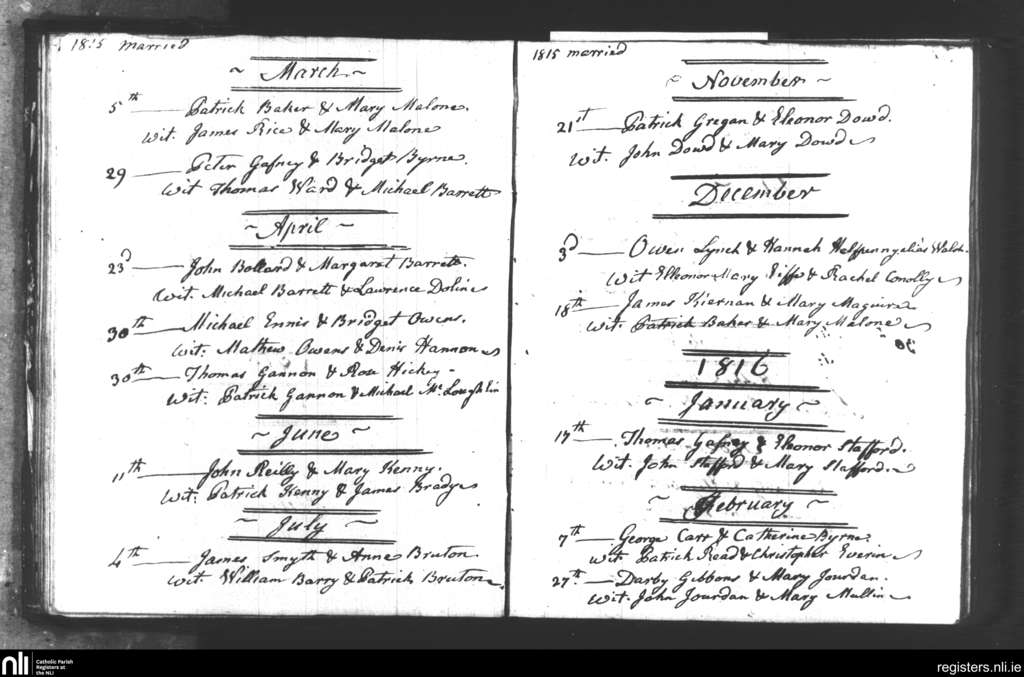 1815 married
~ March ~
5th — Patrick Baker & Mary Malone.
Wit. James Rice & Mary Malone
29 — Peter Gafney & Bridget Byrne.
Wit Thomas Ward & Michael Barrett
~ April ~
23d — John Bollard & Margaret Barrett
Wit. Michael Barrett & Lawrence Dolin
30th — Michael Ennis & Bridget Owens.
Wit: Mathew Owens & Denis Hannon
30th — Thomas Gannon & Rose Hickey -
Wit: Patrick Gannon & Michael Mc Loughlin
~ June ~
11th — John Reilly & Mary Kenny.
Wit: Patrick Kenny & James Brady
~ July ~
4th — James Smyth & Anne Bruton.
Wit William Barry & Patrick Bruton
1815 married
~ November ~
21st — Patrick Gregan & Eleonor Dowd.
Wit. John Dowd & Mary Dowd
December
3d — Owen Lynch & Hannah Halfpenny alias Walsh.
Wit Elleonor Mary & Rachel Conolly
18th — James Kiernan & Mary Maguire
Wit. Patrick Baker & Mary Malone
1816
~ January ~
17th — Thomas Gafney & Eleonor Stafford.
Wit. John Stafford & Mary Stafford.
~ February ~
7th — George Carr & Catherine Byrne.
Wit Patrick Read & Christopher Everin
27th — Darby Gibbons & Mary Jourdan.
Wit. John Jourdan & Mary Mullin
nli
Catholic Parish
Registers at
the NLI
registers.nli.ie